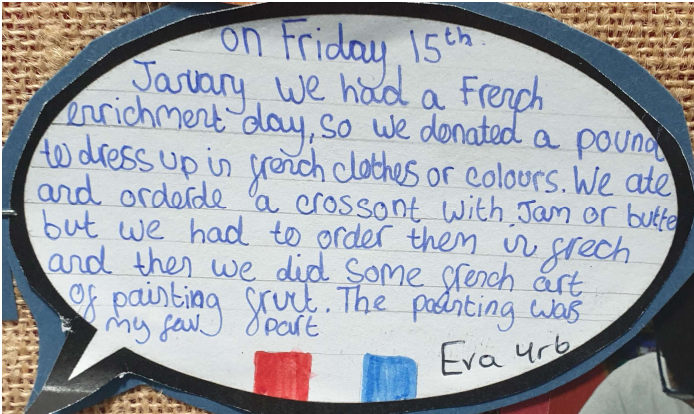 on Friday 15th.
January we had a French
enrichment day, so we donated a pound
to dress up in french clothes or colours. We ate
and orderde a crossont with Jam or butte
but we had to order them in frech
and then we did some french art
of painting fruit. The painting was
my fav part
Eva 4r6